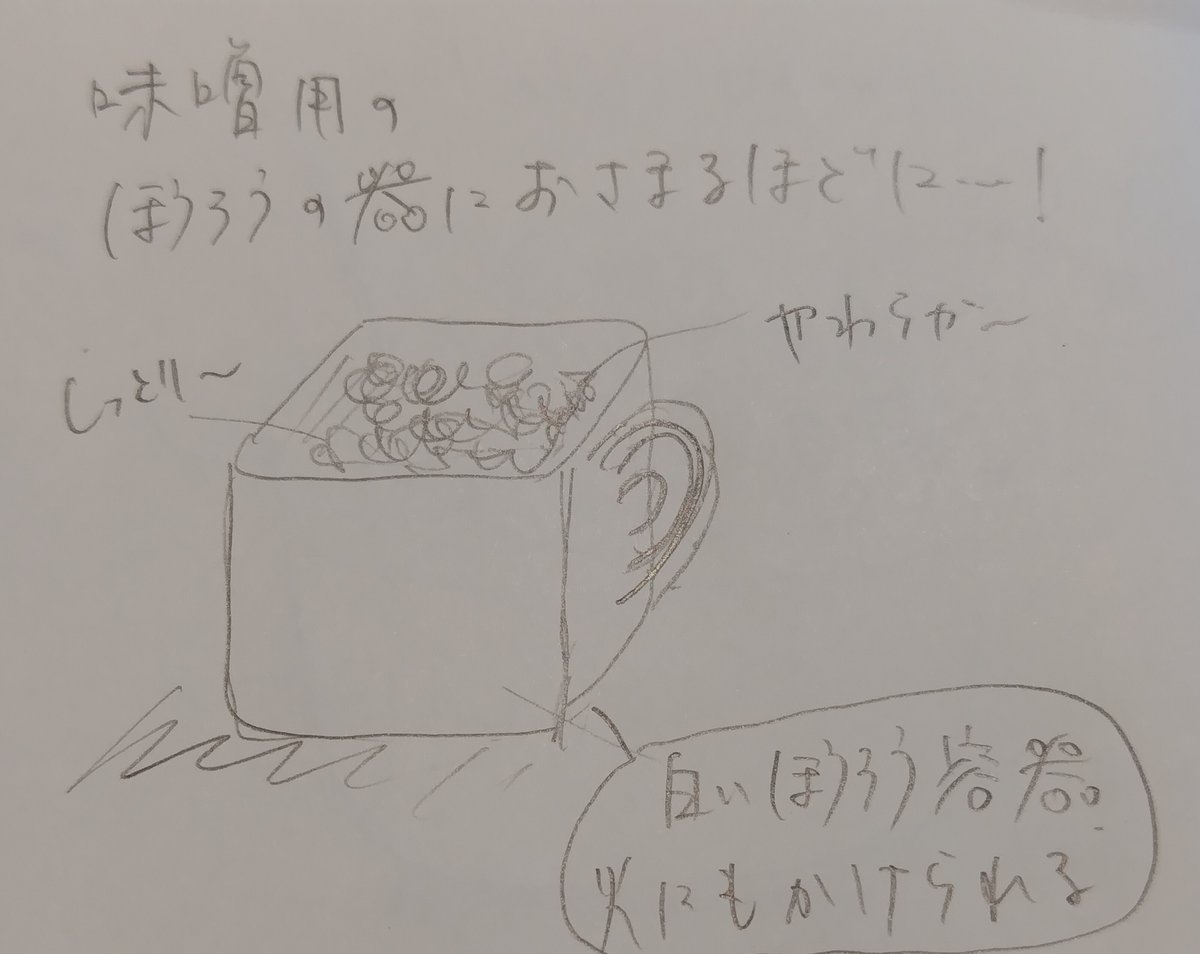 味噌用の
ほうろうの器におさまるほどに…!
やわらか〜
しっとり〜
白いほうろう容器。
火にもかけられる